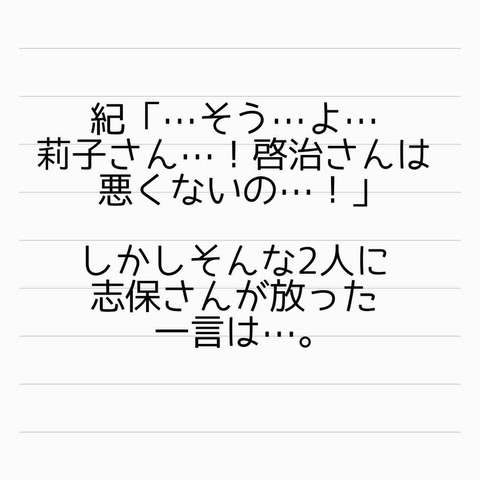 紀「…そう…よ…
莉子さん…！啓治さんは
悪くないの…！」
しかしそんな2人に
志保さんが放った
一言は…。